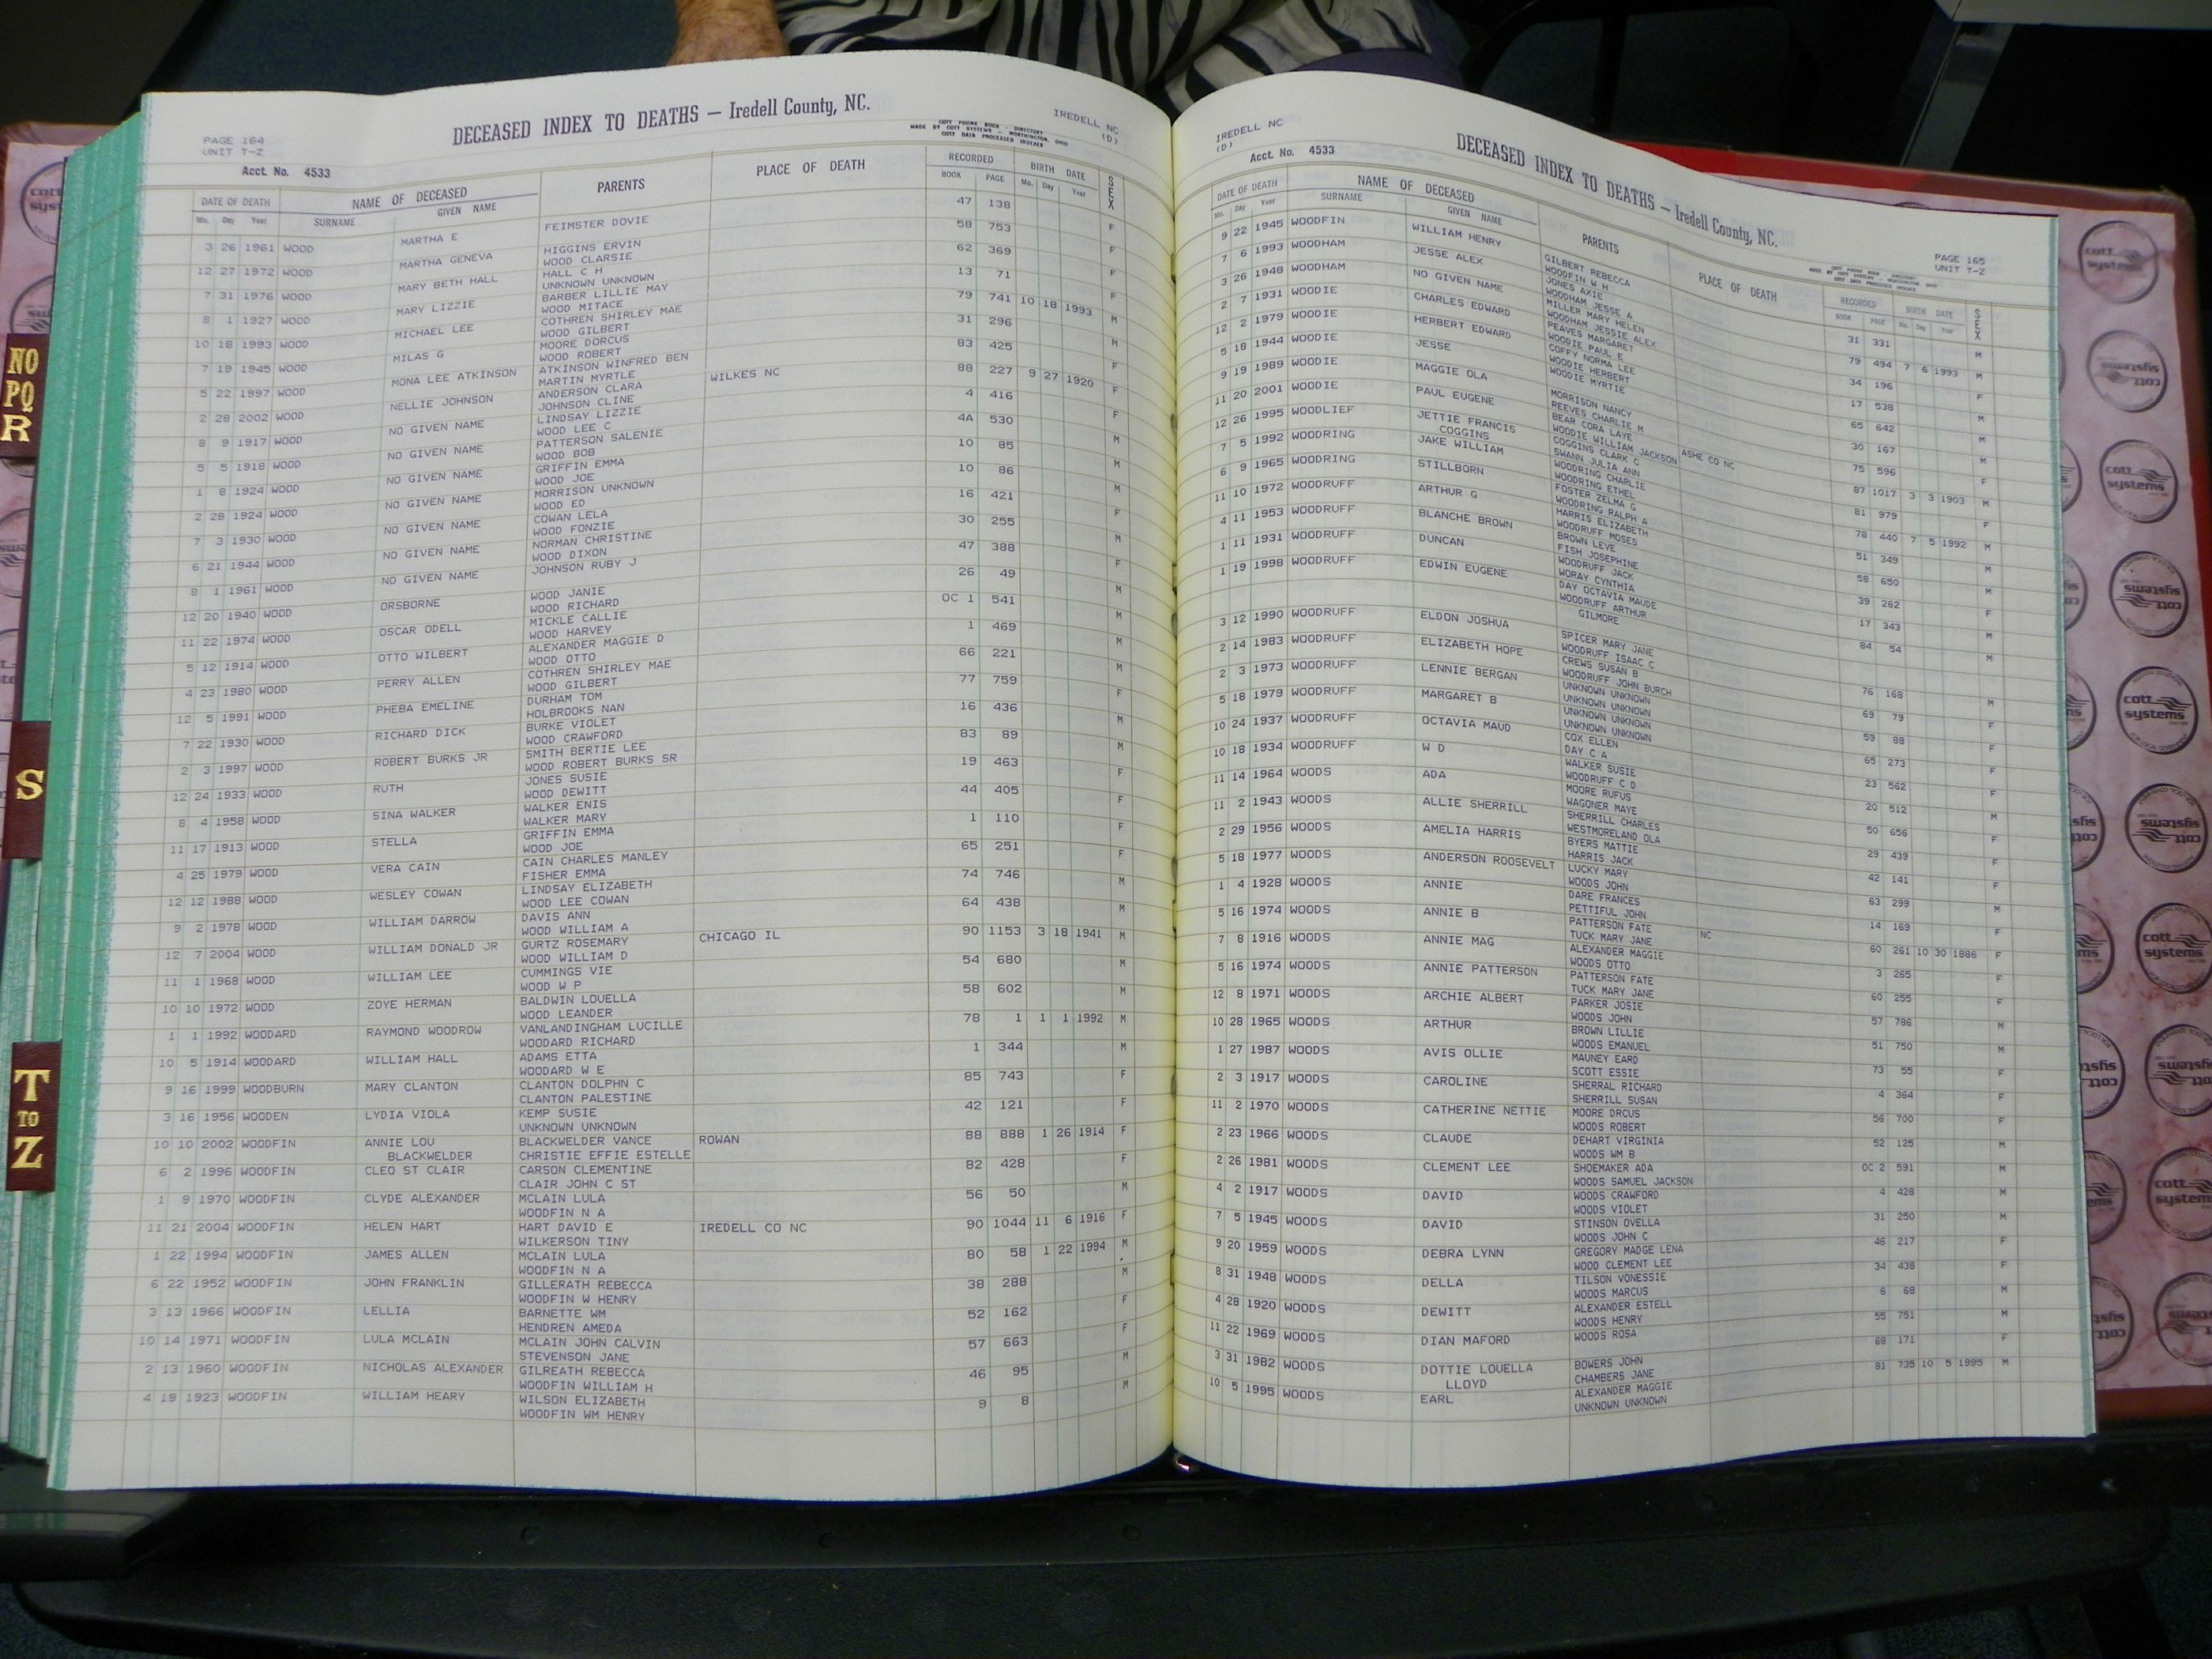 PAGE 164
UNIT T-Z
DECEASED INDEX TO DEATHS — Iredell County, NC.
IREDELL NC
(D)
COTT PHONE BOOK - DIRECTORY
MADE BY COTT SYSTEMS - WORTHINGTON, OHIO
COTT DATA PROCESSED INDEXES
Acct. No. 4533
DATE OF DEATH NAME OF DECEASED PARENTS PLACE OF DEATH RECORDED BIRTH DATE SEX
Mo. Day Year SURNAME GIVEN NAME BOOK PAGE Mo. Day Year
3 26 1961 WOOD MARTHA E FEIMSTER DOVIE 47 138 F
12 27 1972 WOOD MARTHA GENEVA HIGGINS ERVIN 58 753 F
WOOD CLARSIE
7 31 1976 WOOD MARY BETH HALL HALL C H 62 369 F
UNKNOWN UNKNOWN
8 1 1927 WOOD MARY LIZZIE BARBER LILLIE MAY 13 71 F
WOOD MITACE
10 18 1993 WOOD MICHAEL LEE COTHREN SHIRLEY MAE 79 741 10 18 1993 M
WOOD GILBERT
7 19 1945 WOOD MILAS G MOORE DORCUS 31 296 M
WOOD ROBERT
5 22 1997 WOOD MONA LEE ATKINSON ATKINSON WINFRED BEN 83 425 F
MARTIN MYRTLE
2 28 2002 WOOD NELLIE JOHNSON ANDERSON CLARA WILKES NC 88 227 9 27 1920 F
JOHNSON CLINE
8 9 1917 WOOD NO GIVEN NAME LINDSAY LIZZIE 4 416 F
WOOD LEE C
5 5 1918 WOOD NO GIVEN NAME PATTERSON SALENIE 4A 530 M
WOOD BOB
1 8 1924 WOOD NO GIVEN NAME GRIFFIN EMMA 10 85 M
WOOD JOE
2 28 1924 WOOD NO GIVEN NAME MORRISON UNKNOWN 10 86 M
WOOD ED
7 3 1930 WOOD NO GIVEN NAME COWAN LELA 16 421 F
WOOD FONZIE
6 21 1944 WOOD NO GIVEN NAME NORMAN CHRISTINE 30 255 M
WOOD DIXON
8 1 1961 WOOD NO GIVEN NAME JOHNSON RUBY J 47 388 F
12 20 1940 WOOD ORSBORNE WOOD JANIE 26 49 M
WOOD RICHARD
11 22 1974 WOOD OSCAR ODELL MICKLE CALLIE OC 1 541 M
WOOD HARVEY
5 12 1914 WOOD OTTO WILBERT ALEXANDER MAGGIE D 1 469 M
WOOD OTTO
4 23 1980 WOOD PERRY ALLEN COTHREN SHIRLEY MAE 66 221 M
WOOD GILBERT
12 5 1991 WOOD PHEBA EMELINE DURHAM TOM 77 759 F
HOLBROOKS NAN
7 22 1930 WOOD RICHARD DICK BURKE VIOLET 16 436 M
WOOD CRAWFORD
2 3 1997 WOOD ROBERT BURKS JR SMITH BERTIE LEE 83 89 M
WOOD ROBERT BURKS SR
12 24 1933 WOOD RUTH JONES SUSIE 19 463 F
WOOD DEWITT
8 4 1958 WOOD SINA WALKER WALKER ENIS 44 405 F
WALKER MARY
11 17 1913 WOOD STELLA GRIFFIN EMMA 1 110 F
WOOD JOE
4 25 1979 WOOD VERA CAIN CAIN CHARLES MANLEY 65 251 F
FISHER EMMA
12 12 1988 WOOD WESLEY COWAN LINDSAY ELIZABETH 74 746 M
WOOD LEE COWAN
9 2 1978 WOOD WILLIAM DARROW DAVIS ANN 64 438 M
WOOD WILLIAM A
12 7 2004 WOOD WILLIAM DONALD JR GURTZ ROSEMARY CHICAGO IL 90 1153 3 18 1941 M
WOOD WILLIAM D
11 1 1968 WOOD WILLIAM LEE CUMMINGS VIE 54 680 M
WOOD W P
10 10 1972 WOOD ZOYE HERMAN BALDWIN LOUELLA 58 602 M
WOOD LEANDER
1 1 1992 WOODARD RAYMOND WOODROW VANLANDINGHAM LUCILLE 78 1 1 1 1992 M
WOODARD RICHARD
10 5 1914 WOODARD WILLIAM HALL ADAMS ETTA 1 344 M
WOODARD W E
9 16 1999 WOODBURN MARY CLANTON CLANTON DOLPHN C 85 743 F
CLANTON PALESTINE
3 16 1956 WOODEN LYDIA VIOLA KEMP SUSIE 42 121 F
UNKNOWN UNKNOWN
10 10 2002 WOODFIN ANNIE LOU BLACKWELDER VANCE ROWAN 88 888 1 26 1914 F
BLACKWELDER CHRISTIE EFFIE ESTELLE
6 2 1996 WOODFIN CLEO ST CLAIR CARSON CLEMENTINE 82 428 F
CLAIR JOHN C ST
1 9 1970 WOODFIN CLYDE ALEXANDER MCLAIN LULA 56 50 M
WOODFIN N A
11 21 2004 WOODFIN HELEN HART HART DAVID E IREDELL CO NC 90 1044 11 6 1916 F
WILKERSON TINY
1 22 1994 WOODFIN JAMES ALLEN MCLAIN LULA 80 58 1 22 1994 M
WOODFIN N A
6 22 1952 WOODFIN JOHN FRANKLIN GILLERATH REBECCA 38 288 M
WOODFIN W HENRY
3 13 1966 WOODFIN LELLIA BARNETTE WM 52 162 F
HENDREN AMEDA
10 14 1971 WOODFIN LULA MCLAIN MCLAIN JOHN CALVIN 57 663 F
STEVENSON JANE
2 13 1960 WOODFIN NICHOLAS ALEXANDER GILREATH REBECCA 46 95 M
WOODFIN WILLIAM H
4 19 1923 WOODFIN WILLIAM HEARY WILSON ELIZABETH 9 8 M
WOODFIN WM HENRY
IREDELL NC
(D)
DECEASED INDEX TO DEATHS — Iredell County, NC.
PAGE 165
UNIT T-Z
Acct. No. 4533
DATE OF DEATH NAME OF DECEASED PARENTS PLACE OF DEATH RECORDED BIRTH DATE SEX
Mo. Day Year SURNAME GIVEN NAME BOOK PAGE Mo. Day Year
9 22 1945 WOODFIN WILLIAM HENRY GILBERT REBECCA 31 331 M
WOODFIN W H
7 6 1993 WOODHAM JESSE ALEX JONES AXIE 79 494 7 6 1993 M
WOODHAM JESSE A
3 26 1948 WOODHAM NO GIVEN NAME MILLER MARY HELEN 34 196 F
WOODHAM JESSIE ALEX
2 7 1931 WOODIE CHARLES EDWARD PEAVES MARGARET 17 538 M
WOODIE PAUL E
12 2 1979 WOODIE HERBERT EDWARD COFFY NORMA LEE 65 642 M
WOODIE HERBERT
5 18 1944 WOODIE JESSE WOODIE MYRTIE 30 167 M
9 19 1989 WOODIE MAGGIE OLA MORRISON NANCY 75 596 F
REEVES CHARLIE M
11 20 2001 WOODIE PAUL EUGENE BEAR CORA LAYE ASHE CO NC 87 1017 3 3 1903 M
WOODIE WILLIAM JACKSON
12 26 1995 WOODLIEF JETTIE FRANCIS COGGINS CLARK C 81 979 F
COGGINS SWANN JULIA ANN
7 5 1992 WOODRING JAKE WILLIAM WOODRING CHARLIE 78 440 7 5 1992 M
WOODRING ETHEL
6 9 1965 WOODRING STILLBORN FOSTER ZELMA G 51 349
WOODRING RALPH A
11 10 1972 WOODRUFF ARTHUR G HARRIS ELIZABETH 58 650
WOODRUFF MOSES
4 11 1953 WOODRUFF BLANCHE BROWN BROWN LEVE 39 262 F
FISH JOSEPHINE
1 11 1931 WOODRUFF DUNCAN WOODRUFF JACK 17 343 M
WORAY CYNTHIA
1 19 1998 WOODRUFF EDWIN EUGENE DAY OCTAVIA MAUDE 84 54 M
WOODRUFF ARTHUR
GILMORE
3 12 1990 WOODRUFF ELDON JOSHUA SPICER MARY JANE 76 168 M
WOODRUFF ISAAC C
2 14 1983 WOODRUFF ELIZABETH HOPE CREWS SUSAN B 69 79 F
WOODRUFF JOHN BURCH
2 3 1973 WOODRUFF LENNIE BERGAN UNKNOWN UNKNOWN 59 88 F
UNKNOWN UNKNOWN
5 18 1979 WOODRUFF MARGARET B UNKNOWN UNKNOWN 65 273 F
UNKNOWN UNKNOWN
10 24 1937 WOODRUFF OCTAVIA MAUD COX ELLEN 23 562 F
DAY C A
10 18 1934 WOODRUFF W D WALKER SUSIE 20 512 M
WOODRUFF C D
11 14 1964 WOODS ADA MOORE RUFUS 50 656 F
WAGONER MAYE
11 2 1943 WOODS ALLIE SHERRILL SHERRILL CHARLES 29 439 F
WESTMORELAND OLA
2 29 1956 WOODS AMELIA HARRIS BYERS MATTIE 42 141 F
HARRIS JACK
5 18 1977 WOODS ANDERSON ROOSEVELT LUCKY MARY 63 299 M
WOODS JOHN
1 4 1928 WOODS ANNIE DARE FRANCES 14 169 F
PETTIFUL JOHN
5 16 1974 WOODS ANNIE B PATTERSON FATE NC 60 261 10 30 1886 F
TUCK MARY JANE
7 8 1916 WOODS ANNIE MAG ALEXANDER MAGGIE 3 265 F
WOODS OTTO
5 16 1974 WOODS ANNIE PATTERSON PATTERSON FATE 60 255 F
TUCK MARY JANE
12 8 1971 WOODS ARCHIE ALBERT PARKER JOSIE 57 786 M
WOODS JOHN
10 28 1965 WOODS ARTHUR BROWN LILLIE 51 750 M
WOODS EMANUEL
1 27 1987 WOODS AVIS OLLIE MAUNEY EARD 73 55 F
SCOTT ESSIE
2 3 1917 WOODS CAROLINE SHERRAL RICHARD 4 364 F
SHERRILL SUSAN
11 2 1970 WOODS CATHERINE NETTIE MOORE DRCUS 56 700 F
WOODS ROBERT
2 23 1966 WOODS CLAUDE DEHART VIRGINIA 52 125 M
WOODS WM B
2 26 1981 WOODS CLEMENT LEE SHOEMAKER ADA OC 2 591 M
WOODS SAMUEL JACKSON
4 2 1917 WOODS DAVID WOODS CRAWFORD 4 428 M
WOODS VIOLET
7 5 1945 WOODS DAVID STINSON OVELLA 31 250 M
WOODS JOHN C
9 20 1959 WOODS DEBRA LYNN GREGORY MADGE LENA 46 217 F
WOOD CLEMENT LEE
8 31 1948 WOODS DELLA TILSON VONESSIE 34 438 F
WOODS MARCUS
4 28 1920 WOODS DEWITT ALEXANDER ESTELL 6 68 M
WOODS HENRY
11 22 1969 WOODS DIAN MAFORD WOODS ROSA 55 751 M
3 31 1982 WOODS DOTTIE LOUELLA BOWERS JOHN 68 171 F
LLOYD CHAMBERS JANE
10 5 1995 WOODS EARL ALEXANDER MAGGIE 81 735 10 5 1995 M
UNKNOWN UNKNOWN
NO
PQ
R
S
T
TO
Z
cott
systems